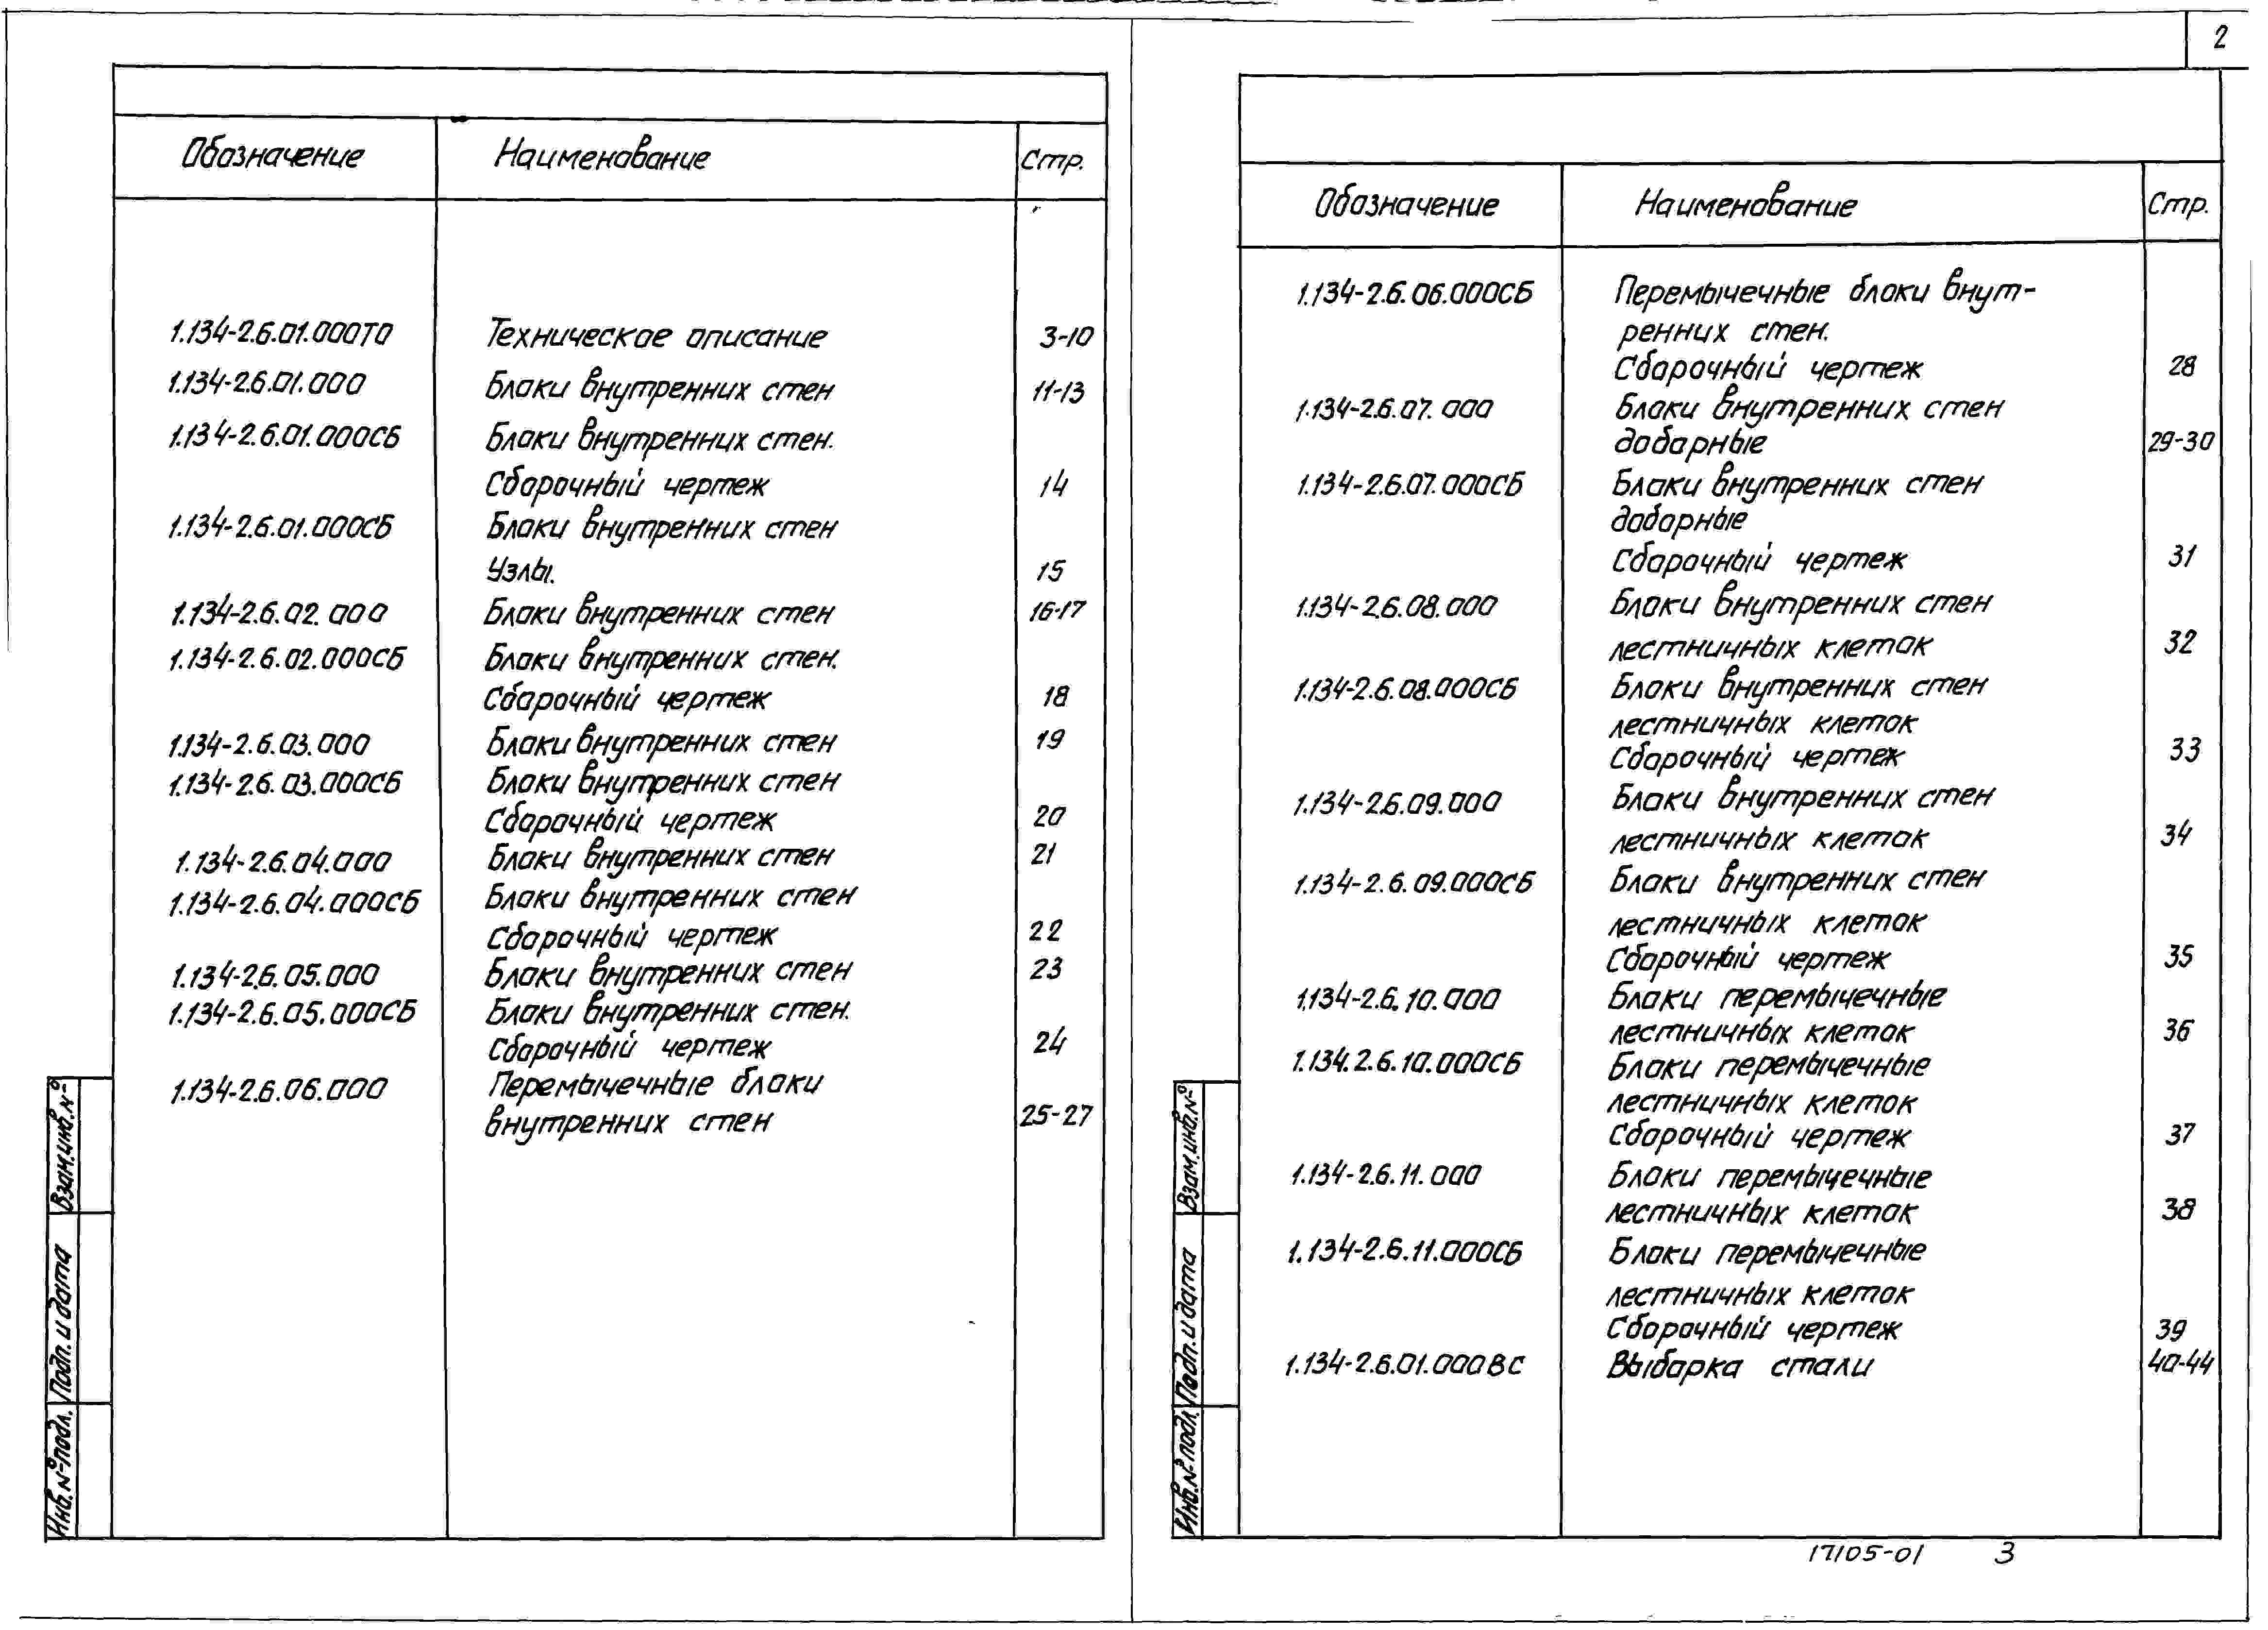 2
Обозначение Наименование Стр.
1.134-2.6.01.000ТО Техническое описание 3-10
1.134-2.6.01.000 Блоки внутренних стен 11-13
1.134-2.6.01.000СБ Блоки внутренних стен.
Сборочный чертеж 14
1.134-2.6.01.000СБ Блоки внутренних стен
Узлы. 15
1.134-2.6.02.000 Блоки внутренних стен 16-17
1.134-2.6.02.000СБ Блоки внутренних стен.
Сборочный чертеж 18
1.134-2.6.03.000 Блоки внутренних стен 19
1.134-2.6.03.000СБ Блоки внутренних стен
Сборочный чертеж 20
1.134-2.6.04.000 Блоки внутренних стен 21
1.134-2.6.04.000СБ Блоки внутренних стен
Сборочный чертеж 22
1.134-2.6.05.000 Блоки внутренних стен 23
1.134-2.6.05.000СБ Блоки внутренних стен.
Сборочный чертеж 24
1.134-2.6.06.000 Перемычечные блоки
внутренних стен 25-27
Взам.инв.№
Подп. и дата
Инв.№подл.
Обозначение Наименование Стр.
1.134-2.6.06.000СБ Перемычечные блоки внут-
ренних стен.
Сборочный чертеж 28
1.134-2.6.07.000 Блоки внутренних стен
доборные 29-30
1.134-2.6.07.000СБ Блоки внутренних стен
доборные
Сборочный чертеж 31
1.134-2.6.08.000 Блоки внутренних стен
лестничных клеток 32
1.134-2.6.08.000СБ Блоки внутренних стен
лестничных клеток
Сборочный чертеж 33
1.134-2.6.09.000 Блоки внутренних стен
лестничных клеток 34
1.134-2.6.09.000СБ Блоки внутренних стен
лестничных клеток
Сборочный чертеж 35
1.134-2.6.10.000 Блоки перемычечные
лестничных клеток 36
1.134.2.6.10.000СБ Блоки перемычечные
лестничных клеток
Сборочный чертеж 37
1.134-2.6.11.000 Блоки перемычечные
лестничных клеток 38
1.134-2.6.11.000СБ Блоки перемычечные
лестничных клеток
Сборочный чертеж 39
1.134-2.6.01.000ВС Выборка стали 40-44
Взам.инв.№
Подп. и дата
Инв.№подл.
17105-01 3